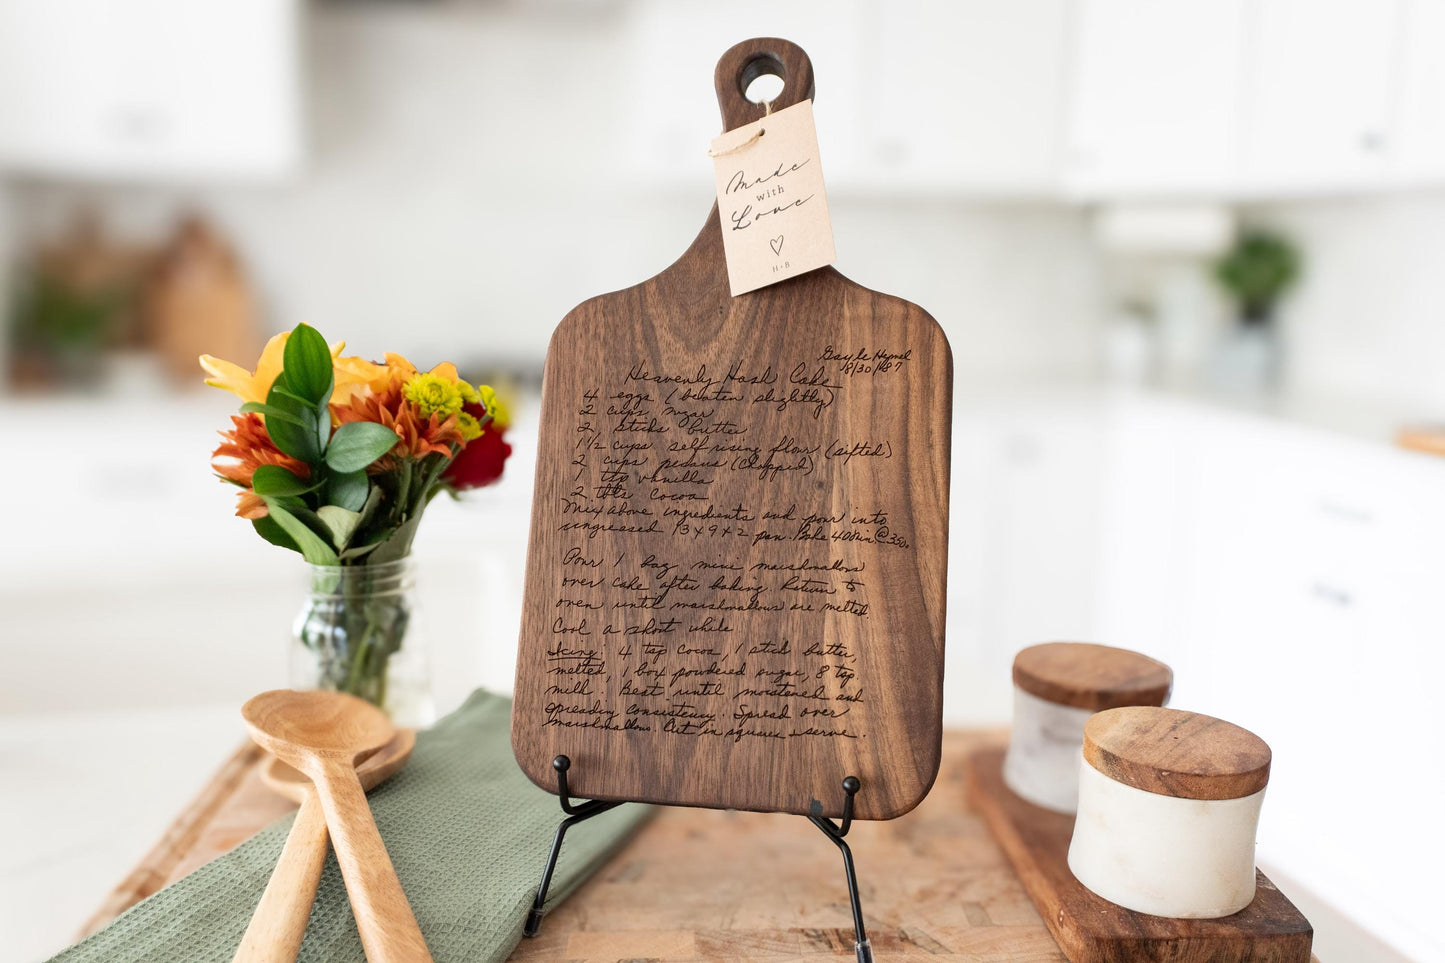 Made
with
Love
H+B
Gayle Hymel
8/30/1987
Heavenly Hash Cake
4 eggs (beaten slightly)
2 cups sugar
2 sticks butter
1 1/2 cups self rising flour (sifted)
2 cups pecans (chopped)
1 tsp vanilla
2 tbls cocoa
Mix above ingredients and pour into
ungreased 13x9x2 pan. Bake 40 min. @ 350.
Pour 1 bag mini marshmallows
over cake after baking. Return to
oven until marshmallows are melted.
Cool a short while
Icing: 4 tsp cocoa, 1 stick butter,
melted, 1 box powdered sugar, 8 tsp.
milk. Beat until moistened and
spreading consistency. Spread over
marshmallows. Cut in squares + serve.